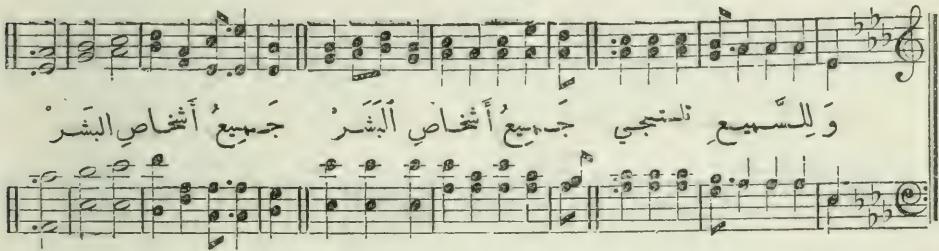 وَ لِلسَّمِيعِ تلتجي جَمِيعُ أَشْخَاصِ ٱلْبَشَرْ جَمِيعُ أَشْخَاصِ البَشَرْ